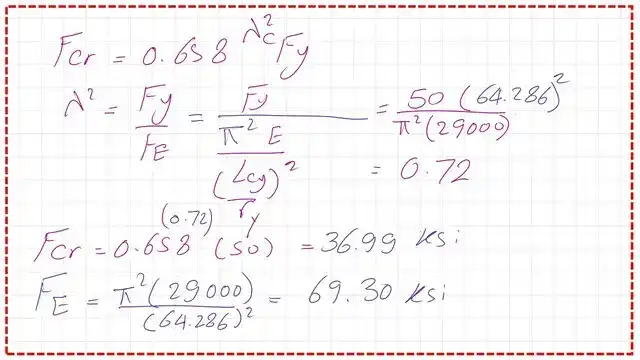 Fcr = 0.658^λc² Fy
λ² = Fy/FE = Fy/(π² E/(Lcy/ry)²) = 50 (64.286)²/π²(29000)
= 0.72
Fcr = 0.658^(0.72) (50) = 36.99 ksi
FE = π²(29000)/(64.286)² = 69.30 ksi